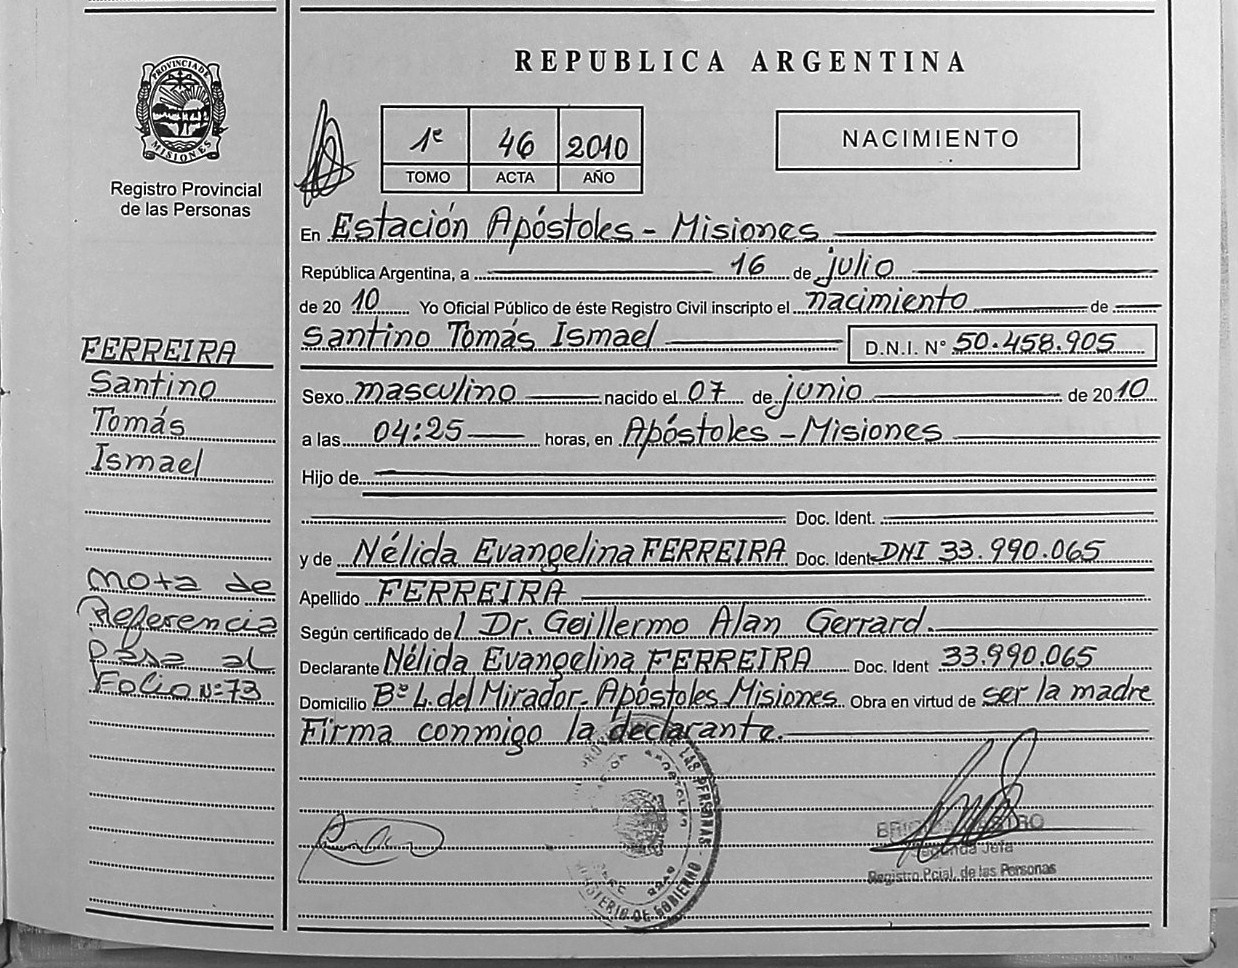 REPUBLICA ARGENTINA
PROVINCIA DE
MISIONES
Registro Provincial
de las Personas
1º 46 2010
TOMO ACTA AÑO
NACIMIENTO
En Estación Apóstoles - Misiones
República Argentina, a 16 de julio
de 2010 Yo Oficial Público de éste Registro Civil inscripto el nacimiento de
Santino Tomás Ismael D.N.I. N° 50.458.905
FERREIRA
Santino
Tomás
Ismael
Sexo masculino nacido el 07 de junio de 2010
a las 04:25 horas, en Apóstoles - Misiones
Hijo de
Doc. Ident.
y de Nélida Evangelina FERREIRA Doc. Ident DNI 33.990.065
Apellido FERREIRA
Según certificado del Dr. Guillermo Alan Gerrard.
Declarante Nélida Evangelina FERREIRA Doc. Ident 33.990.065
Domicilio Bº L. del Mirador - Apóstoles Misiones Obra en virtud de ser la madre
Firma conmigo la declarante.
Nota de
Referencia
pasa al
Folio Nº 73
DE LAS PERSONAS
APOSTOLES
MINISTERIO DE GOBIERNO
Segunda Jefa
Registro Pcial. de las Personas